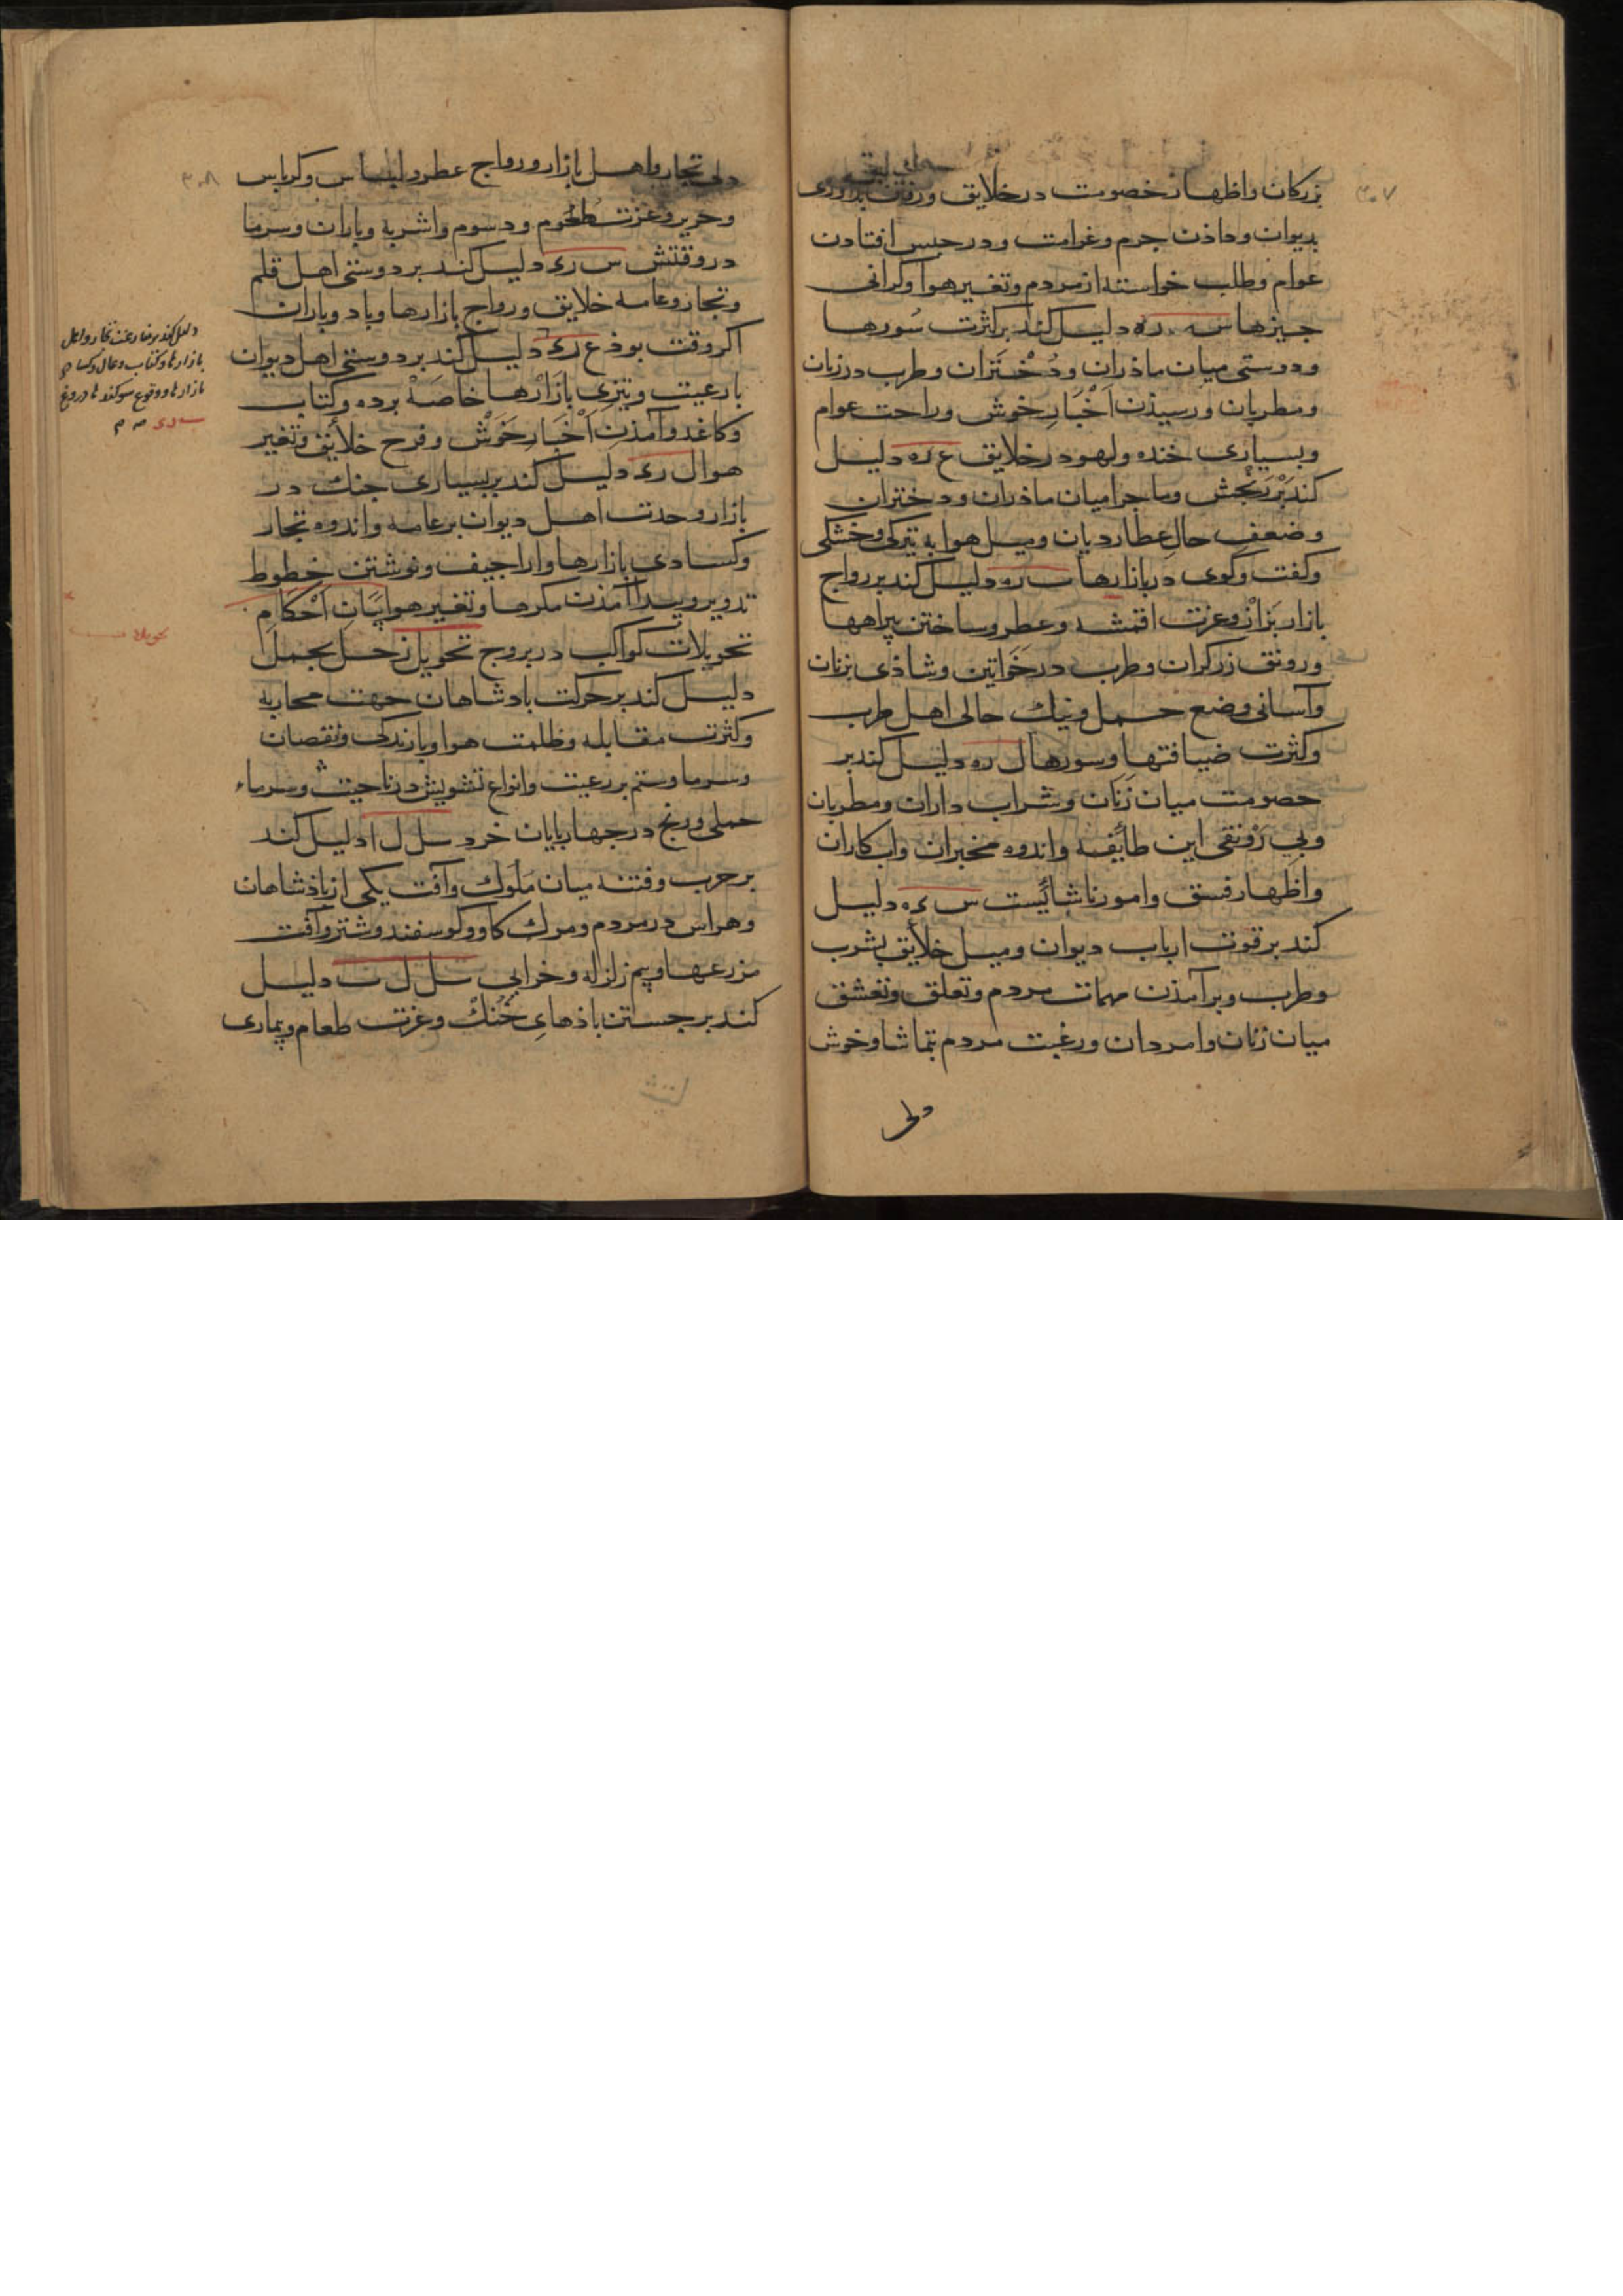 ۳۰۷
بزرکان واظهار خصومت در خلایق ورفتن بداوری
بدیوان وداذن جرم وغرامت ودر حبس افتادن
عوام وطلب خواسته از مردم وتغیر هوا وکرانی
چیزها سه ره دلیل کند بر کثرت سُورها
ودوستی میان ماذران ودُخْتَران وطرب در زنان
ومطربان ورسیذن اَخْبَارِ خوش وراحت عوام
وبسیاری خنده ولهو در خلایق ع ره دلیل
کند بَرْ رَنْجش وماجرا میان ماذران ودختران
وضعفِ حالِ عطاردیان ومیل هوا به تیرکی وخشکی
وکفت وکوی در بازارها ب ره دلیل کند بر رواج
بازار بَزازْ وعزت اقمشه وعطر وساختن پیراهها
ورونق زرکران وطرب در خَواتین وشاذی بزنان
وآسانی وضع حمل ونیک حالی اهل طرب
وکثرت ضیافتها وسورها ل ره دلیل کند بر
خصومت میان زَنان وشراب داران ومطربان
وبی رَوْنقی این طایٔفه واندوه مخبران وابکاران
واظهار فسق وامور ناشایٔست س ءه دلیل
کند بر قوت ارباب دیوان ومیل خلایٔق بشرب
وطرب وبرآمذن مهمات مردم وتعلق وتعشق
میان زنان وامردان ورغبت مردم بتماشا وخوش
دلی
۳۰۸
دلی تجار واهل بازار ورواج عطر ولباس وکرباس
وحریر وعزت طحُوم ودسوم واشربه وباران وسرما
در وقتش س رء دلیل کند بر دوستی اهل قلم
وتجار وعامه خلایق ورواج بازارها وباد وباران
اکر وقت بوذ ع رء دلیل کند بر دوستی اهل دیوان
بارعیت وتیزی بازَارْها خاصَهْ برده وکتاب
وکاغد وآمذن اَخْبَارِ خَوَشْ وفرح خلایٔق وتغیر
هوا ل رء دلیل کند بر بسیاری جنک در
بازار وحدت اهل دیوان بر عامه واندوه تجار
وکسادی بازارها واراجیف ونوشتن خطوط
تدویر وپیدا آمذن مکرها وتغیر هوا بَیَانِ اَحْکام
تحویلات کواکب در بروج تحویل زحل بحمل
دلیل کند بر حرکت بادشاهان جهت محاربه
وکثرت مقابله وظلمت هوا وبارندکی ونقصان
وسرما وستم بر رعیت وانواع تشویش در ناحیت وسرماء
حملی ورنج در چهاربایان خرد سل ل ا دلیل کند
بر حرب وفتنه میان ملوک وآفت یکی از باذشاهان
وهراس در مردم ومرک کاو وکوسفند وشتر وآفت
مزرعها وبیم زلزله وخرابی سل ل ب دلیل
کند بر جستن باذهایِ خُنُکْ وعزت طعام وبیماری